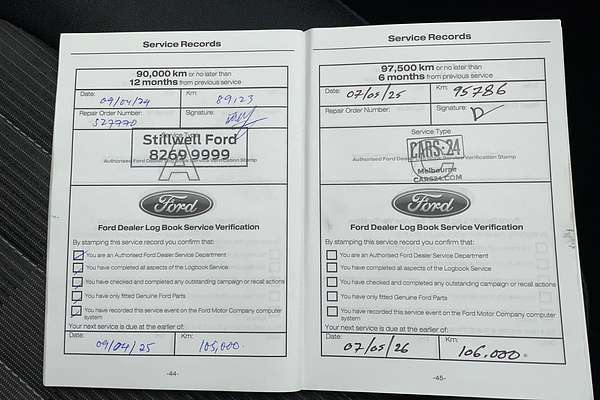 Service Records
90,000 km or no later than
12 months from previous service
Date: 09/04/24 Km: 89123
Repair Order Number: Signature:
S27770
Service Type
Stillwell Ford
8269 9999
Authorised Ford Dealer Service Verification Stamp
A
Ford
Ford Dealer Log Book Service Verification
By stamping this service record you confirm that:
You are an Authorised Ford Dealer Service Department
You have completed all aspects of the Logbook Service
You have checked and completed any outstanding campaign or recall actions
You have only fitted Genuine Ford Parts
You have recorded this service event on the Ford Motor Company computer
system
Your next service is due at the earlier of:
Date: 09/04/25 Km: 105,000.
-44-
Service Records
97,500 km or no later than
6 months from previous service
Date: 07/05/25 Km: 95786
Repair Order Number: Signature:
Service Type
CARS-24
Authorised Ford Dealer Service Verification Stamp
Melbourne
CARS24.COM
Ford
Ford Dealer Log Book Service Verification
By stamping this service record you confirm that:
You are an Authorised Ford Dealer Service Department
You have completed all aspects of the Logbook Service
You have checked and completed any outstanding campaign or recall actions
You have only fitted Genuine Ford Parts
You have recorded this service event on the Ford Motor Company computer
system
Your next service is due at the earlier of:
Date: 07/05/26 Km: 106,000.
-45-